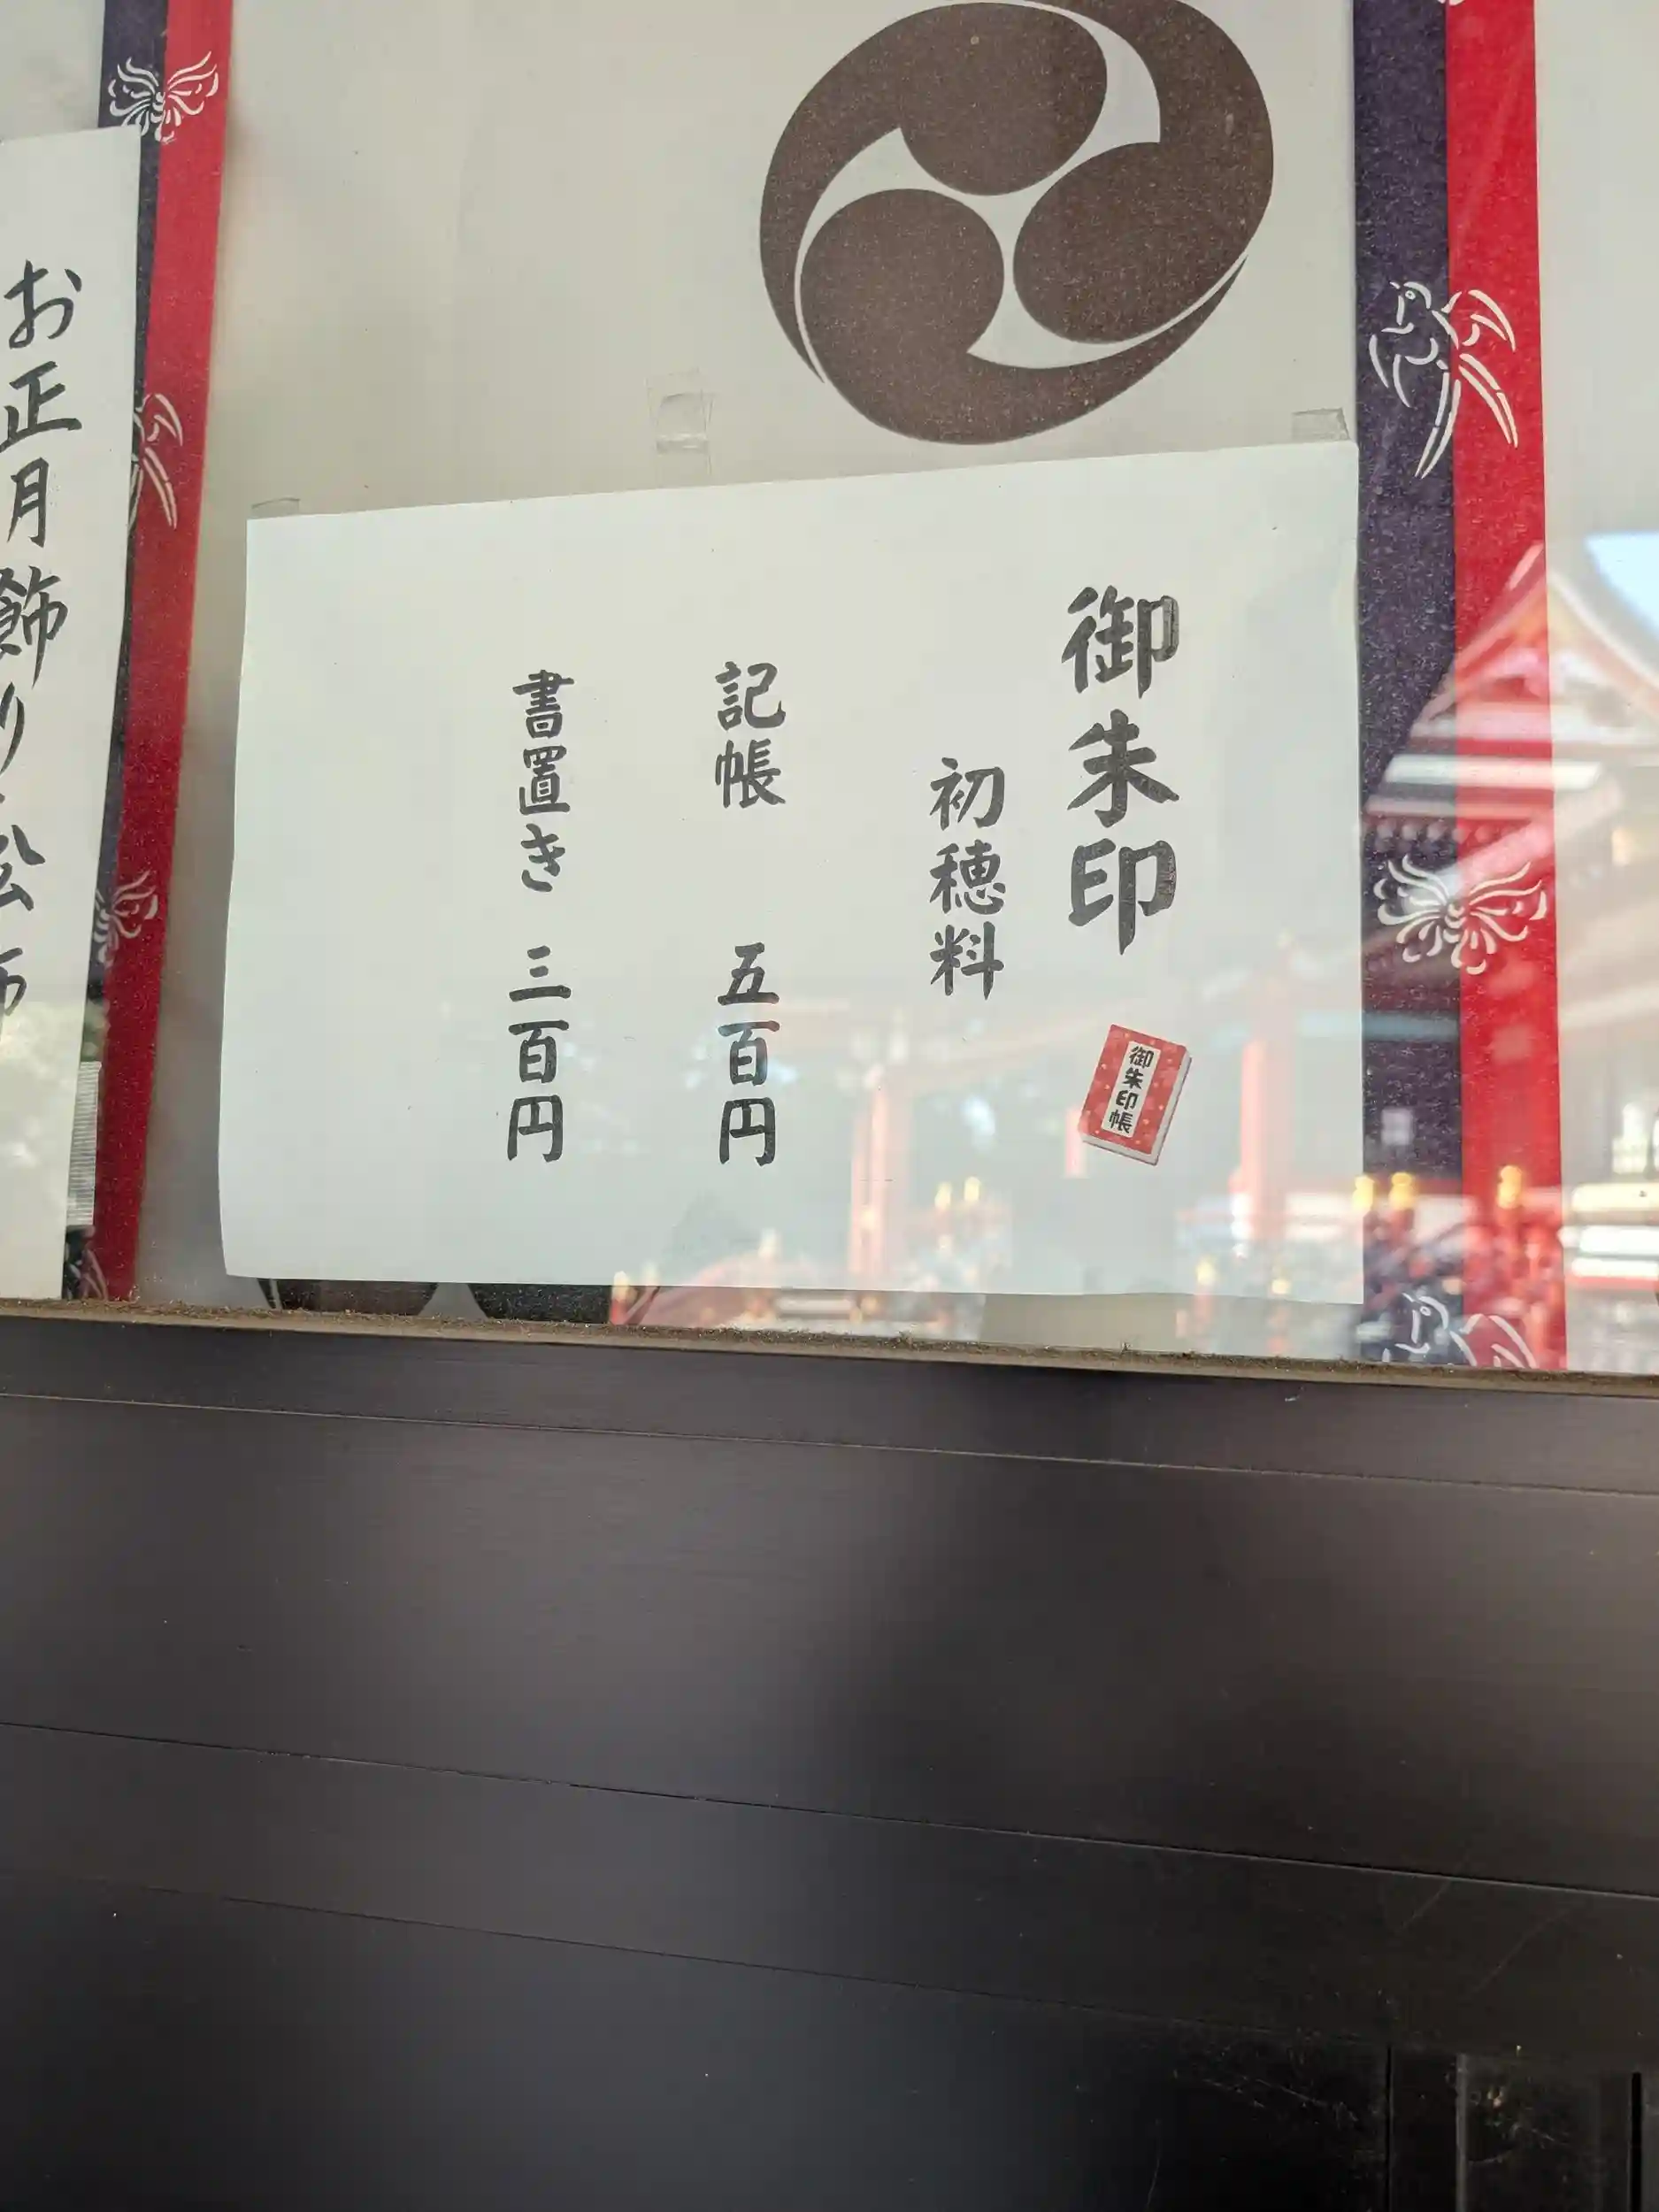 御朱印
初穂料
記帳 五百円
書置き 三百円
御朱印帳
お正月飾り